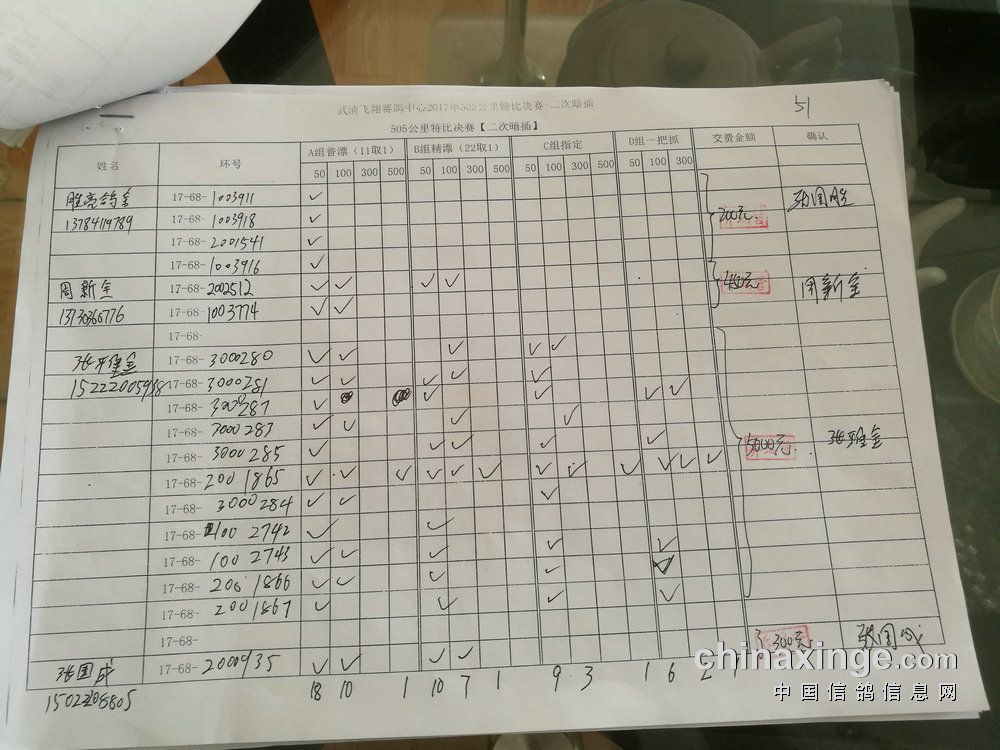 51
武清飞翔赛鸽中心2017年505公里特比决赛-二次暗插
505公里特比决赛【二次暗插】
姓名 环号 A组普漂（11取1） B组精漂（22取1） C组指定 D组一把抓 交费金额 确认
50 100 300 500 50 100 300 500 50 100 300 500 50 100 300
胜亮鸽舍 17-68-1003911 ✓
13784119789 17-68-1003918 ✓ 200元
17-68-2001541 ✓
17-68-1003916 ✓
周新金 17-68-2002512 ✓ ✓ ✓ ✓ 周新金
17-68-1003774 ✓ ✓
17-68-
17-68-3000280 ✓ ✓ ✓ ✓ ✓
17-68-3000281 ✓ ✓ ✓ ✓ ✓
17-68-3000287 ✓ ✓ ✓ ✓ ✓
17-68-3000283 ✓ ✓ ✓ ✓
17-68-3000285 ✓ ✓ ✓ ✓ ✓ 5000元
17-68-2001865 ✓ ✓ ✓ ✓ ✓ ✓ ✓ ✓ ✓ ✓ ✓ ✓
17-68-3000284 ✓ ✓ ✓
17-68-1002742 ✓ ✓
17-68-1002743 ✓ ✓ ✓ ✓ ✓
17-68-2001866 ✓ ✓ ✓ ✓ ✓
17-68-2001867 ✓ ✓ ✓ ✓
17-68- 300元 张国成
张国成 17-68-2000935 ✓ ✓ ✓ ✓
18 10 1 10 7 1 9 3 1 6 2 1
chinaxinge.com
中国信鸽信息网